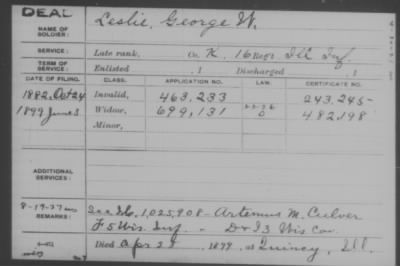 DEAL
NAME OF SOLDIER: Leslie, George W.
SERVICE: Late rank, Co. K, 16 Reg't Ill Inf.
TERM OF SERVICE: Enlisted , 1 Discharged , 1
DATE OF FILING. CLASS. APPLICATION NO. LAW. CERTIFICATE NO.
1882, Oct 24 Invalid, 463,233 243,245-
1899 June 3 Widow, 699,131 482,198
Minor,
ADDITIONAL SERVICES:
8-19-27
REMARKS: 1,025,908 - Artemus M. Culver
F 5 Wis. Inf. - D & I 3 Wis Cav.
Died Apr 28, 1899, at Quincy, Ill.